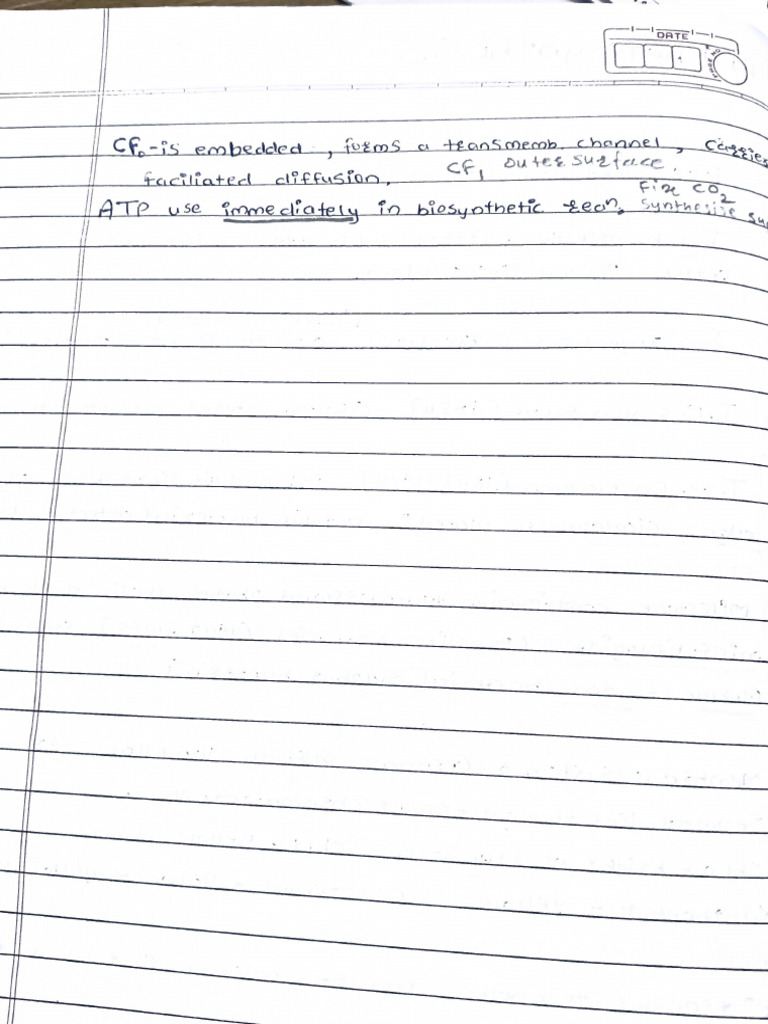 DATE
CF₀-is embedded, forms a transmemb. channel, carries
faciliated diffusion. CF₁ outer surface.
Fix CO₂
ATP use immediately in biosynthetic reaⁿ, synthesise su